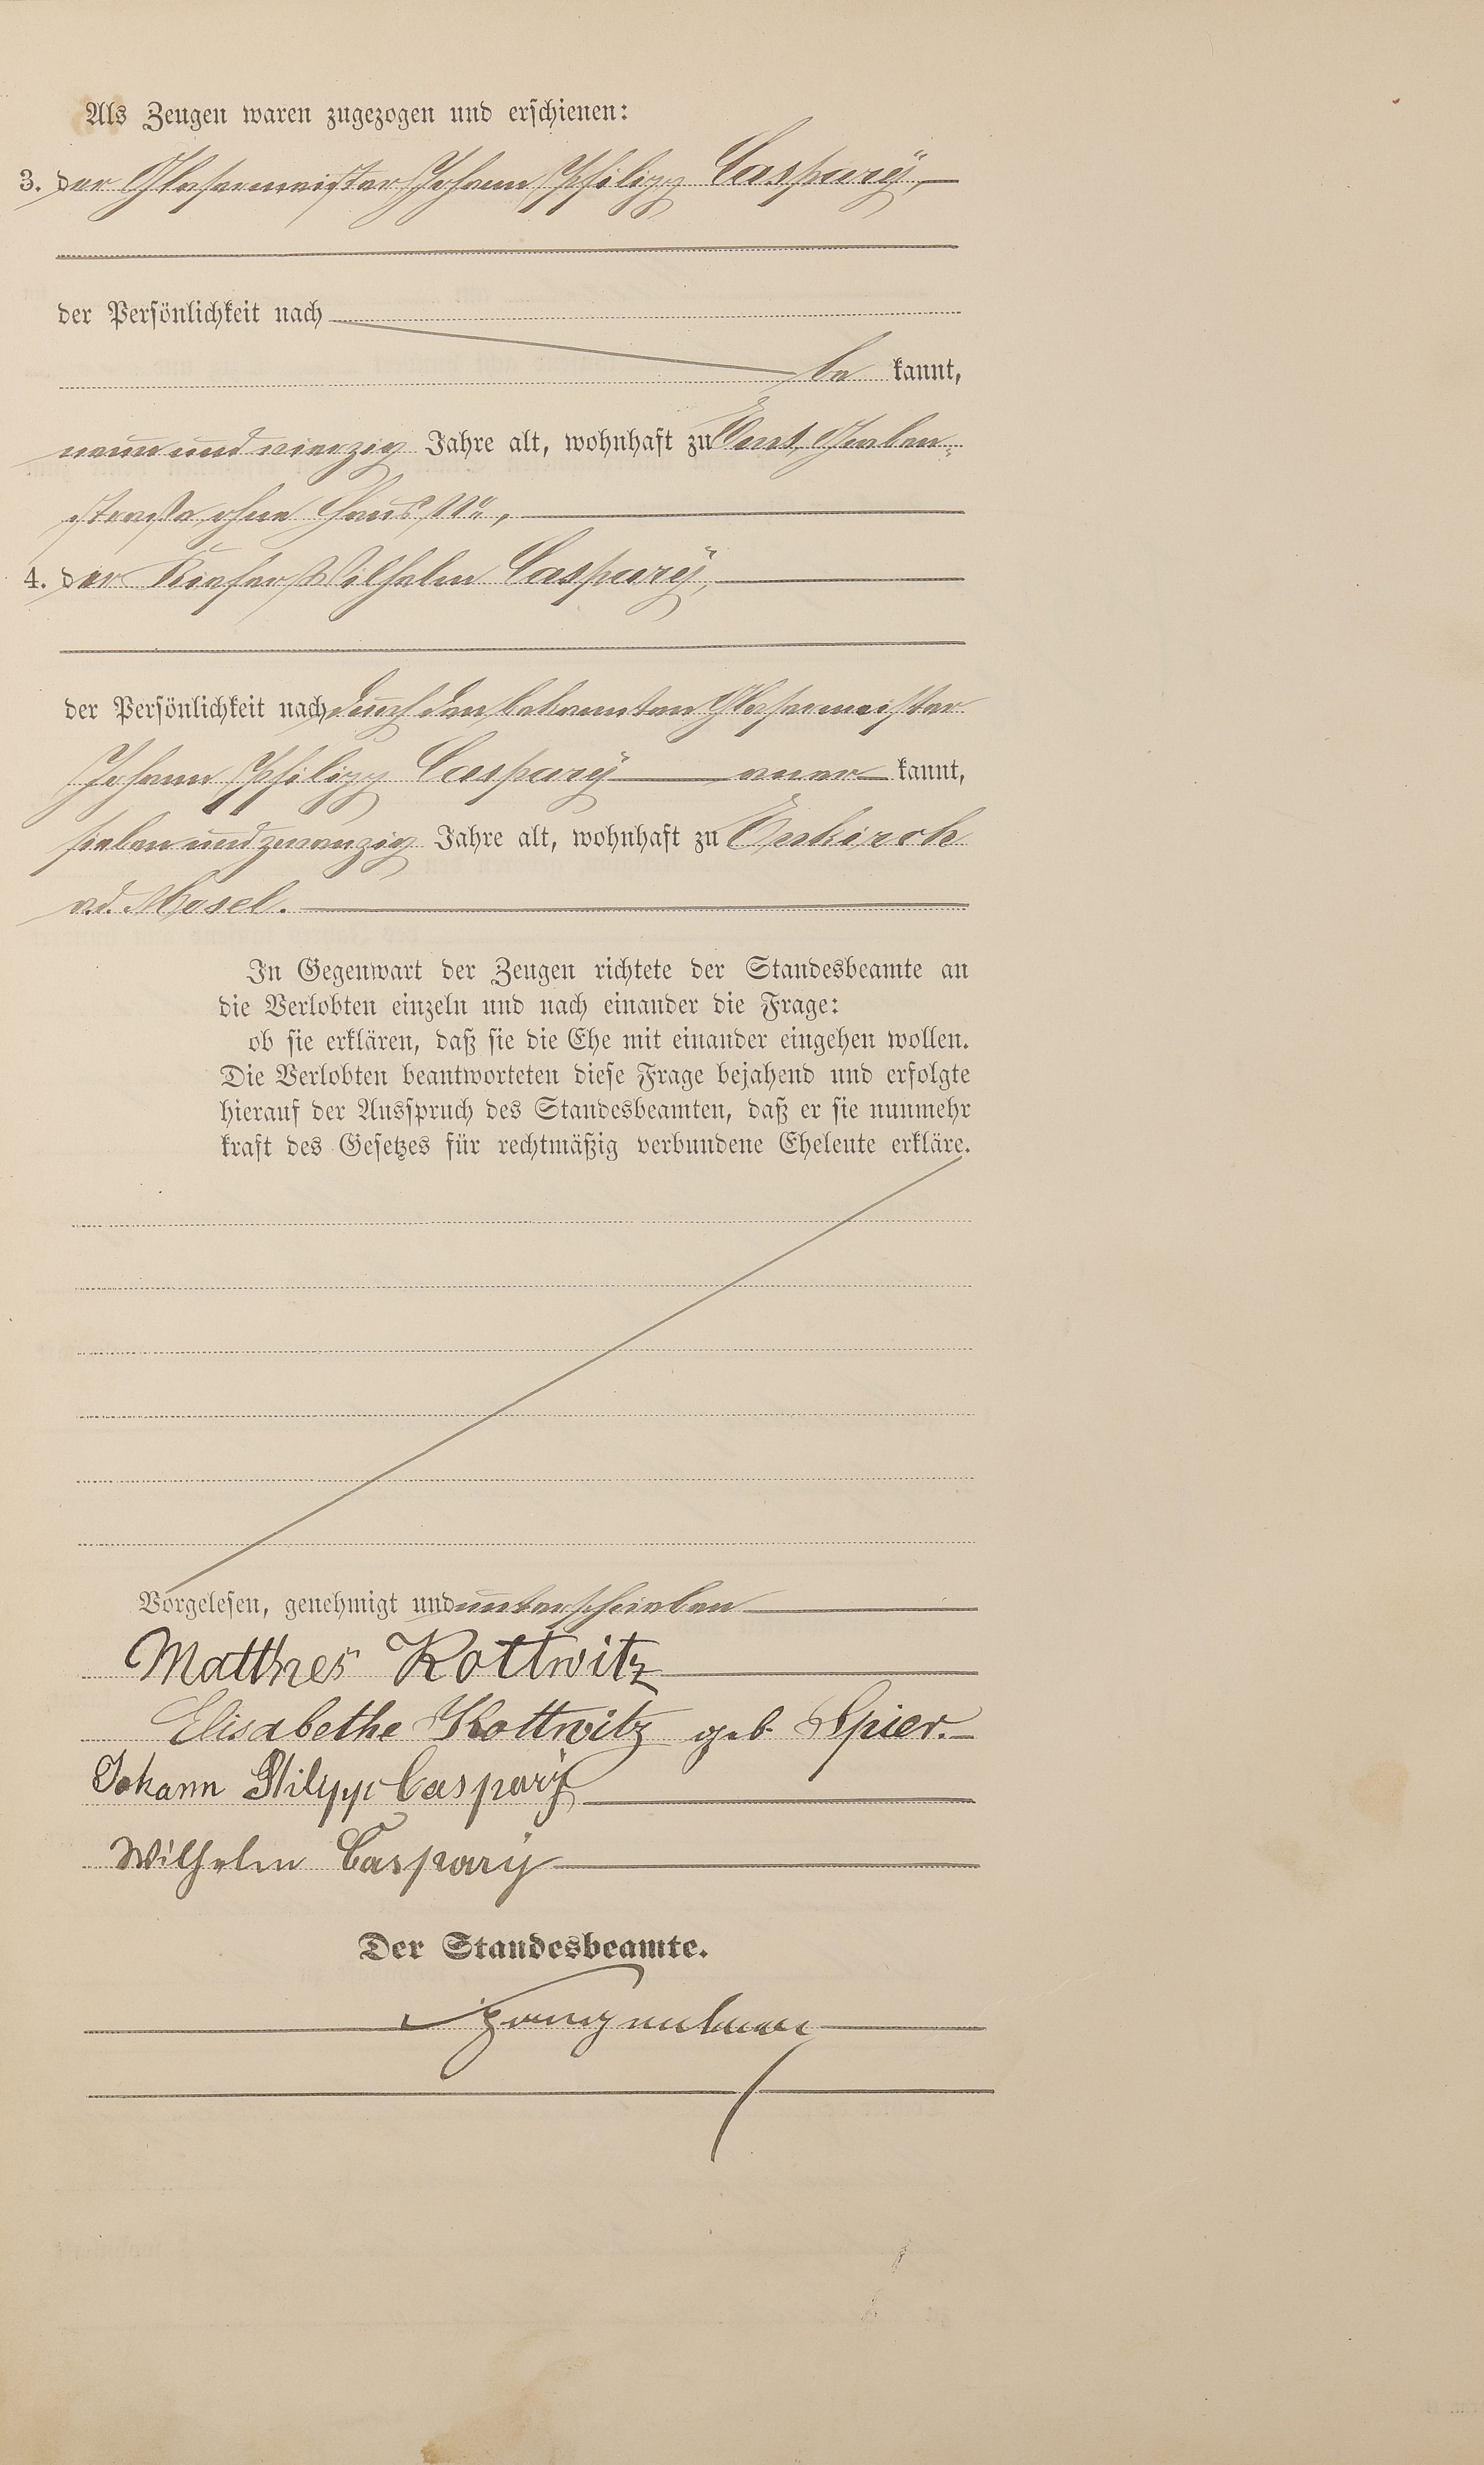 Als Zeugen waren zugezogen und erschienen:
3. der Glasermeister Johann Philipp Caspary,
der Persönlichkeit nach
be kannt,
neun und vierzig Jahre alt, wohnhaft zu
straße ohne Haus No,
4. der Küfer Wilhelm Caspary,
der Persönlichkeit nach durch den bekannten Glasermeister
Johann Philipp Caspary aner kannt,
sieben und zwanzig Jahre alt, wohnhaft zu Enkirch
a.d. Mosel.
In Gegenwart der Zeugen richtete der Standesbeamte an
die Verlobten einzeln und nach einander die Frage:
ob sie erklären, daß sie die Ehe mit einander eingehen wollen.
Die Verlobten beantworteten diese Frage bejahend und erfolgte
hierauf der Ausspruch des Standesbeamten, daß er sie nunmehr
kraft des Gesetzes für rechtmäßig verbundene Eheleute erkläre.
Vorgelesen, genehmigt und unterschrieben
Matthes Kottwitz
Elisabethe Kottwitz geb. Spier.
Johann Philipp Caspary
Wilhelm Caspary
Der Standesbeamte.